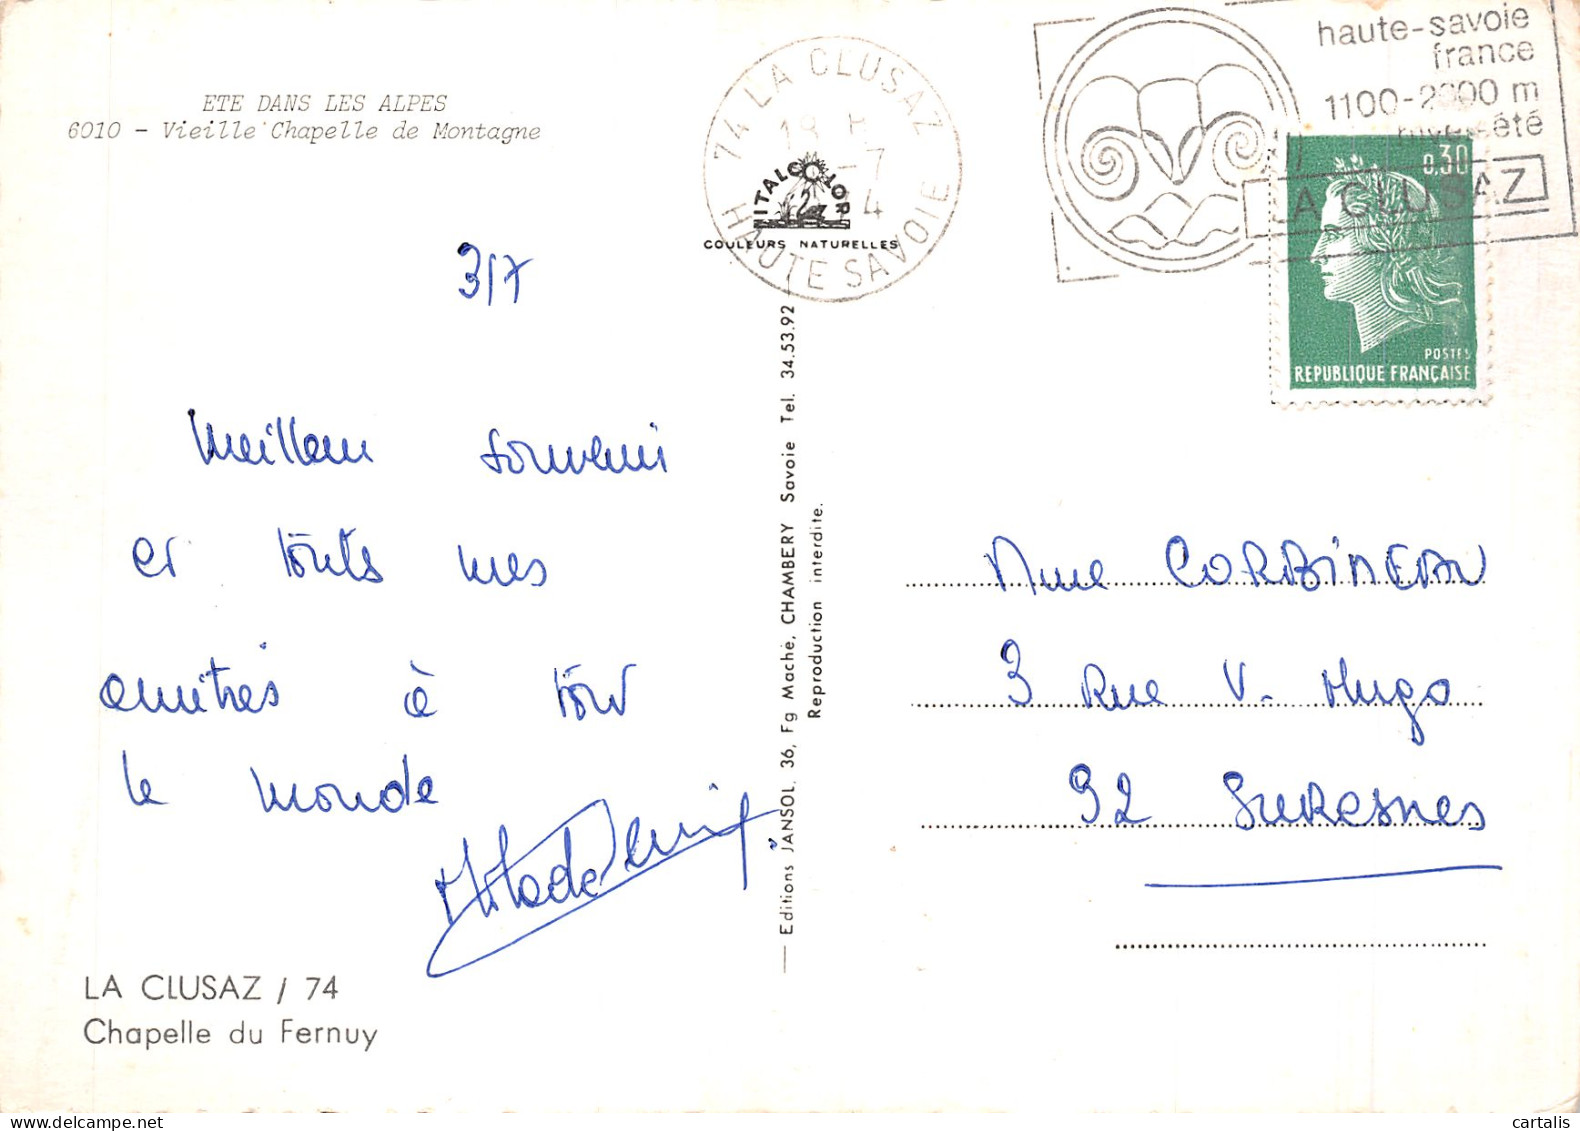 ETE DANS LES ALPES
6010 - Vieille Chapelle de Montagne
3/7
Meilleur souvenir
et toutes mes
amitiés à tout
le monde
LA CLUSAZ / 74
Chapelle du Fernuy
74 LA CLUSAZ
HAUTE SAVOIE
ITALCOLOR
COULEURS NATURELLES
Editions JANSOL, 36, Fg Maché, CHAMBERY Savoie Tel. 34.53.92
Reproduction interdite.
haute-savoie
france
1100-2600 m
hiver-été
LA CLUSAZ
0,30
POSTES
REPUBLIQUE FRANÇAISE
Mme CORBINEAU
3 Rue V. Hugo
92 SURESNES
cartalis